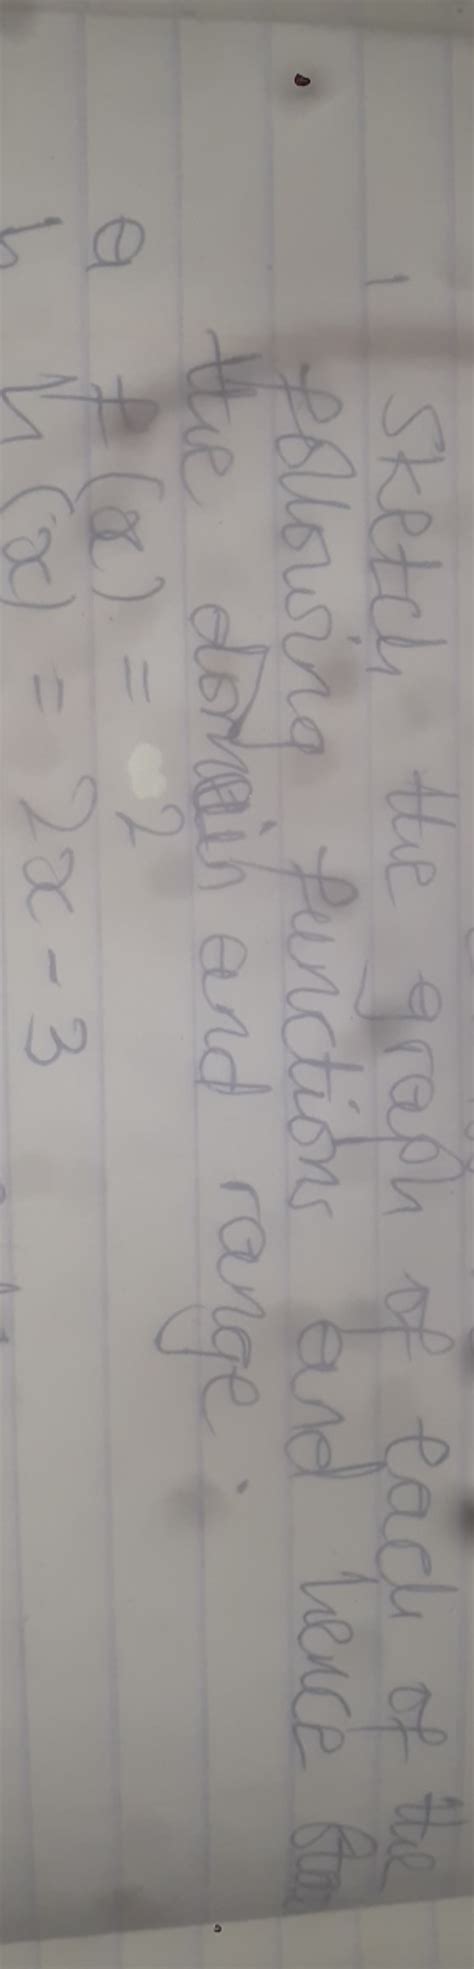 1 Sketch the graph of each of the
following functions and hence
the domain and range.
a f(x) = 2
b h(x) = 2x - 3